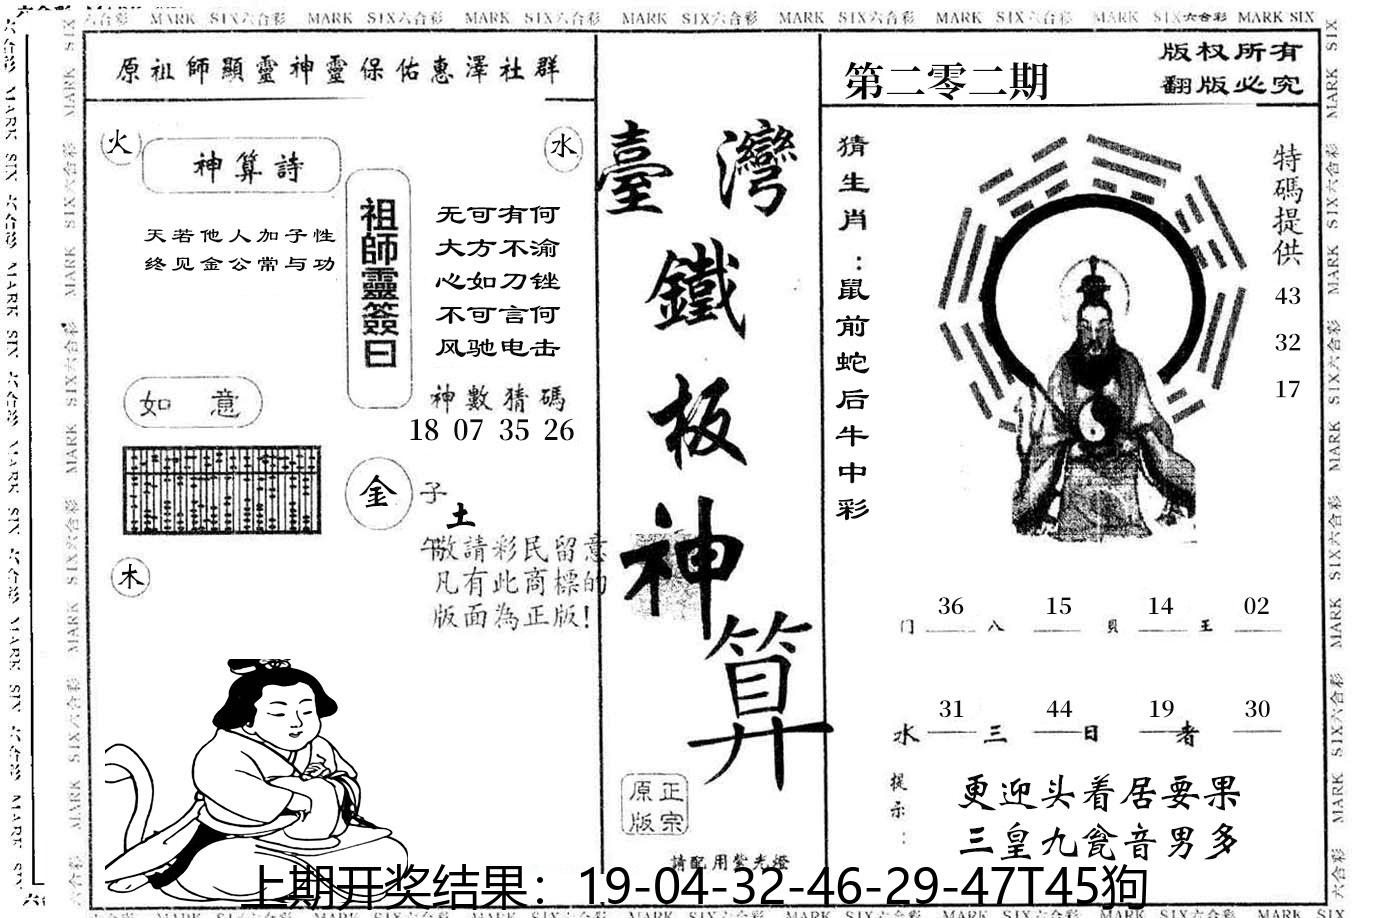 MARK SIX六合彩 MARK SIX六合彩 MARK SIX六合彩 MARK SIX六合彩 MARK SIX六合彩 MARK SIX六合彩 MARK SIX六合彩 MARK SIX
原祖師顯靈神靈保佑惠澤社群
火
神算詩
水
天若他人加子性
终见金公常与功
祖師靈簽曰
无可有何
大方不渝
心如刀锉
不可言何
风驰电击
如 意
神數猜碼
18 07 35 26
金
子
土
午
敬請彩民留意
凡有此商標的
版面為正版!
木
臺灣
鐵
板
神
算
原正
版宗
請配用紫光燈
第二零二期
版权所有
翻版必究
猜生肖:鼠前蛇后牛中彩
特碼提供
43
32
17
36 15 14 02
门 八 貝 王
31 44 19 30
水 三 日 者
提示:
更迎头着居要果
三皇九瓮音男多
上期开奖结果：19-04-32-46-29-47T45狗